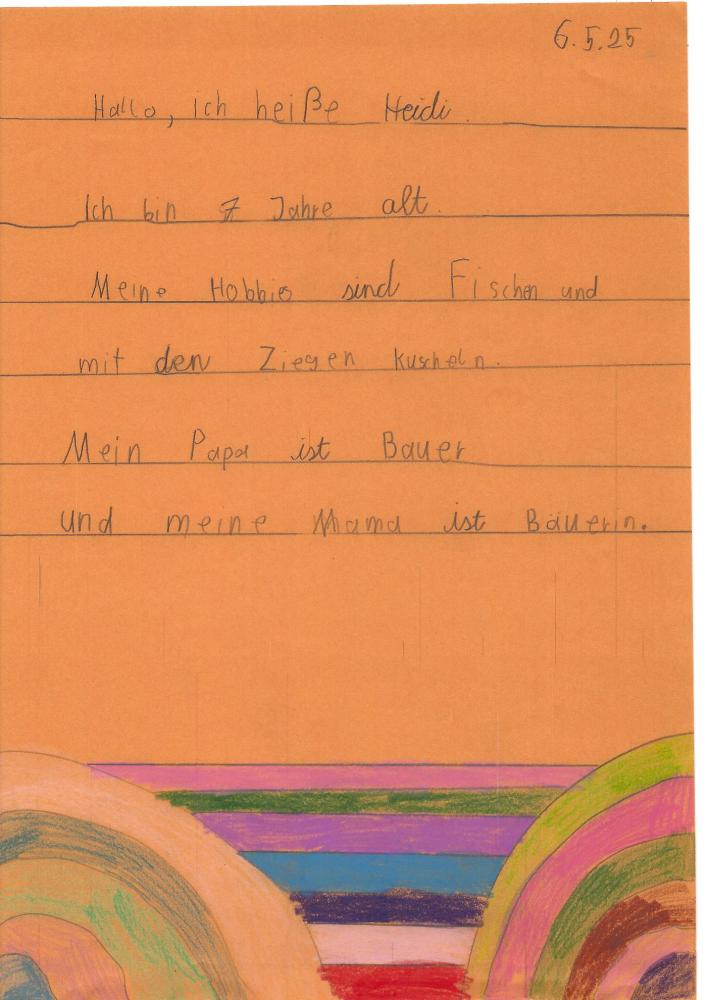 6.5.25
Hallo, ich heiße Heidi.
Ich bin 7 Jahre alt.
Meine Hobbies sind Fischen und
mit den Ziegen kuscheln.
Mein Papa ist Bauer
und meine Mama ist Bäuerin.